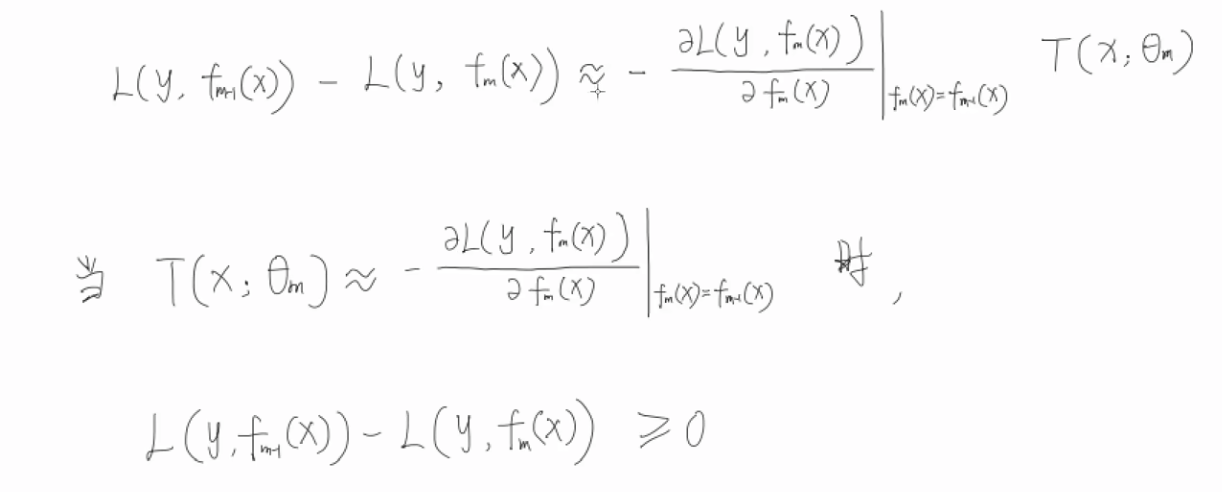 L(y, f_{m-1}(x)) - L(y, f_m(x)) ≈ - ∂L(y, f_m(x)) / ∂f_m(x) |_{f_m(x)=f_{m-1}(x)} T(x; θ_m)
当 T(x; θ_m) ≈ - ∂L(y, f_m(x)) / ∂f_m(x) |_{f_m(x)=f_{m-1}(x)} 时,
L(y, f_{m-1}(x)) - L(y, f_m(x)) ⩾ 0